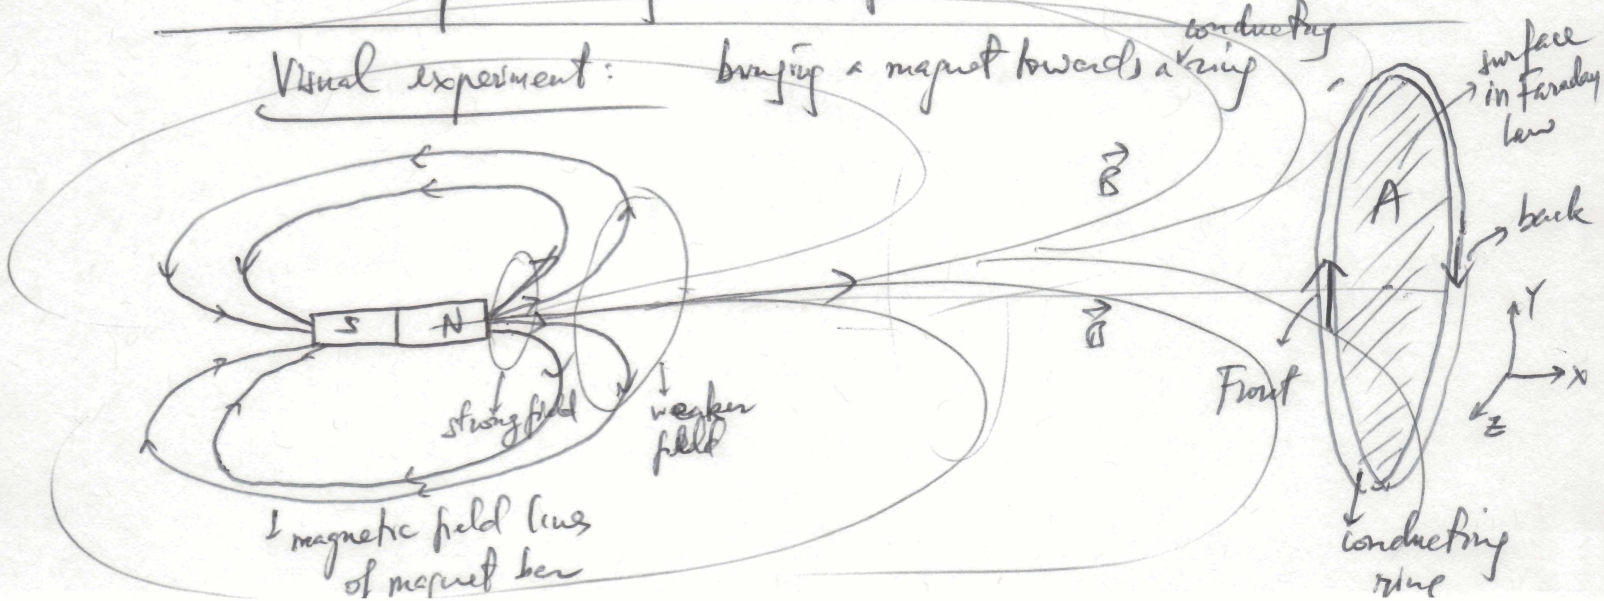 Visual experiment: bringing a magnet towards a conducting ring
surface
in Faraday
law
B
A
back
S N
B
Y
X
Z
Front
strong field
weaker
field
magnetic field lines
of magnet bar
conducting
ring